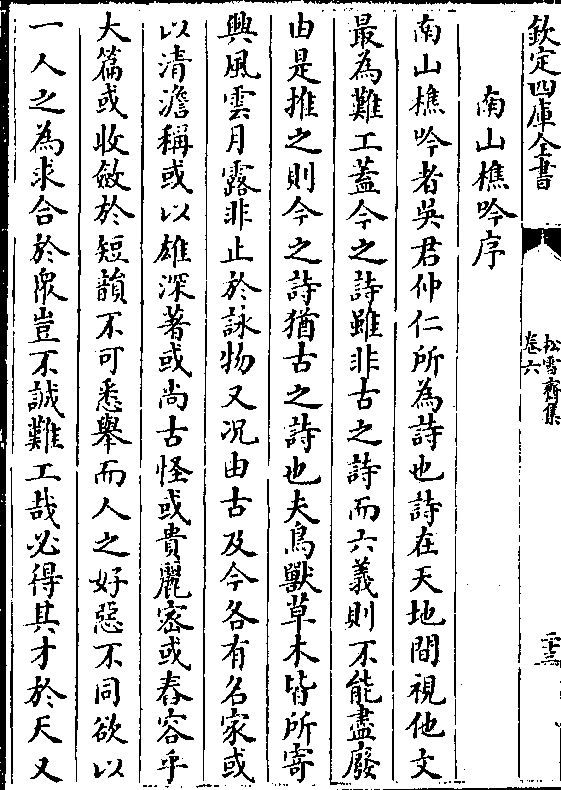 欽定四庫全書
松雪齋集
卷六
南山樵吟序
南山樵吟者吳君仲仁所為詩也詩在天地間視他文
最為難工蓋今之詩雖非古之詩而六義則不能盡廢
由是推之則今之詩猶古之詩也夫鳥獸草木皆所寄
興風雲月露非止於詠物又况由古及今各有名家或
以清澹稱或以雄深著或尚古怪或貴麗密或舂容乎
大篇或收斂於短韻不可悉舉而人之好惡不同欲以
一人之為求合於衆豈不誠難工哉必得其才於天又